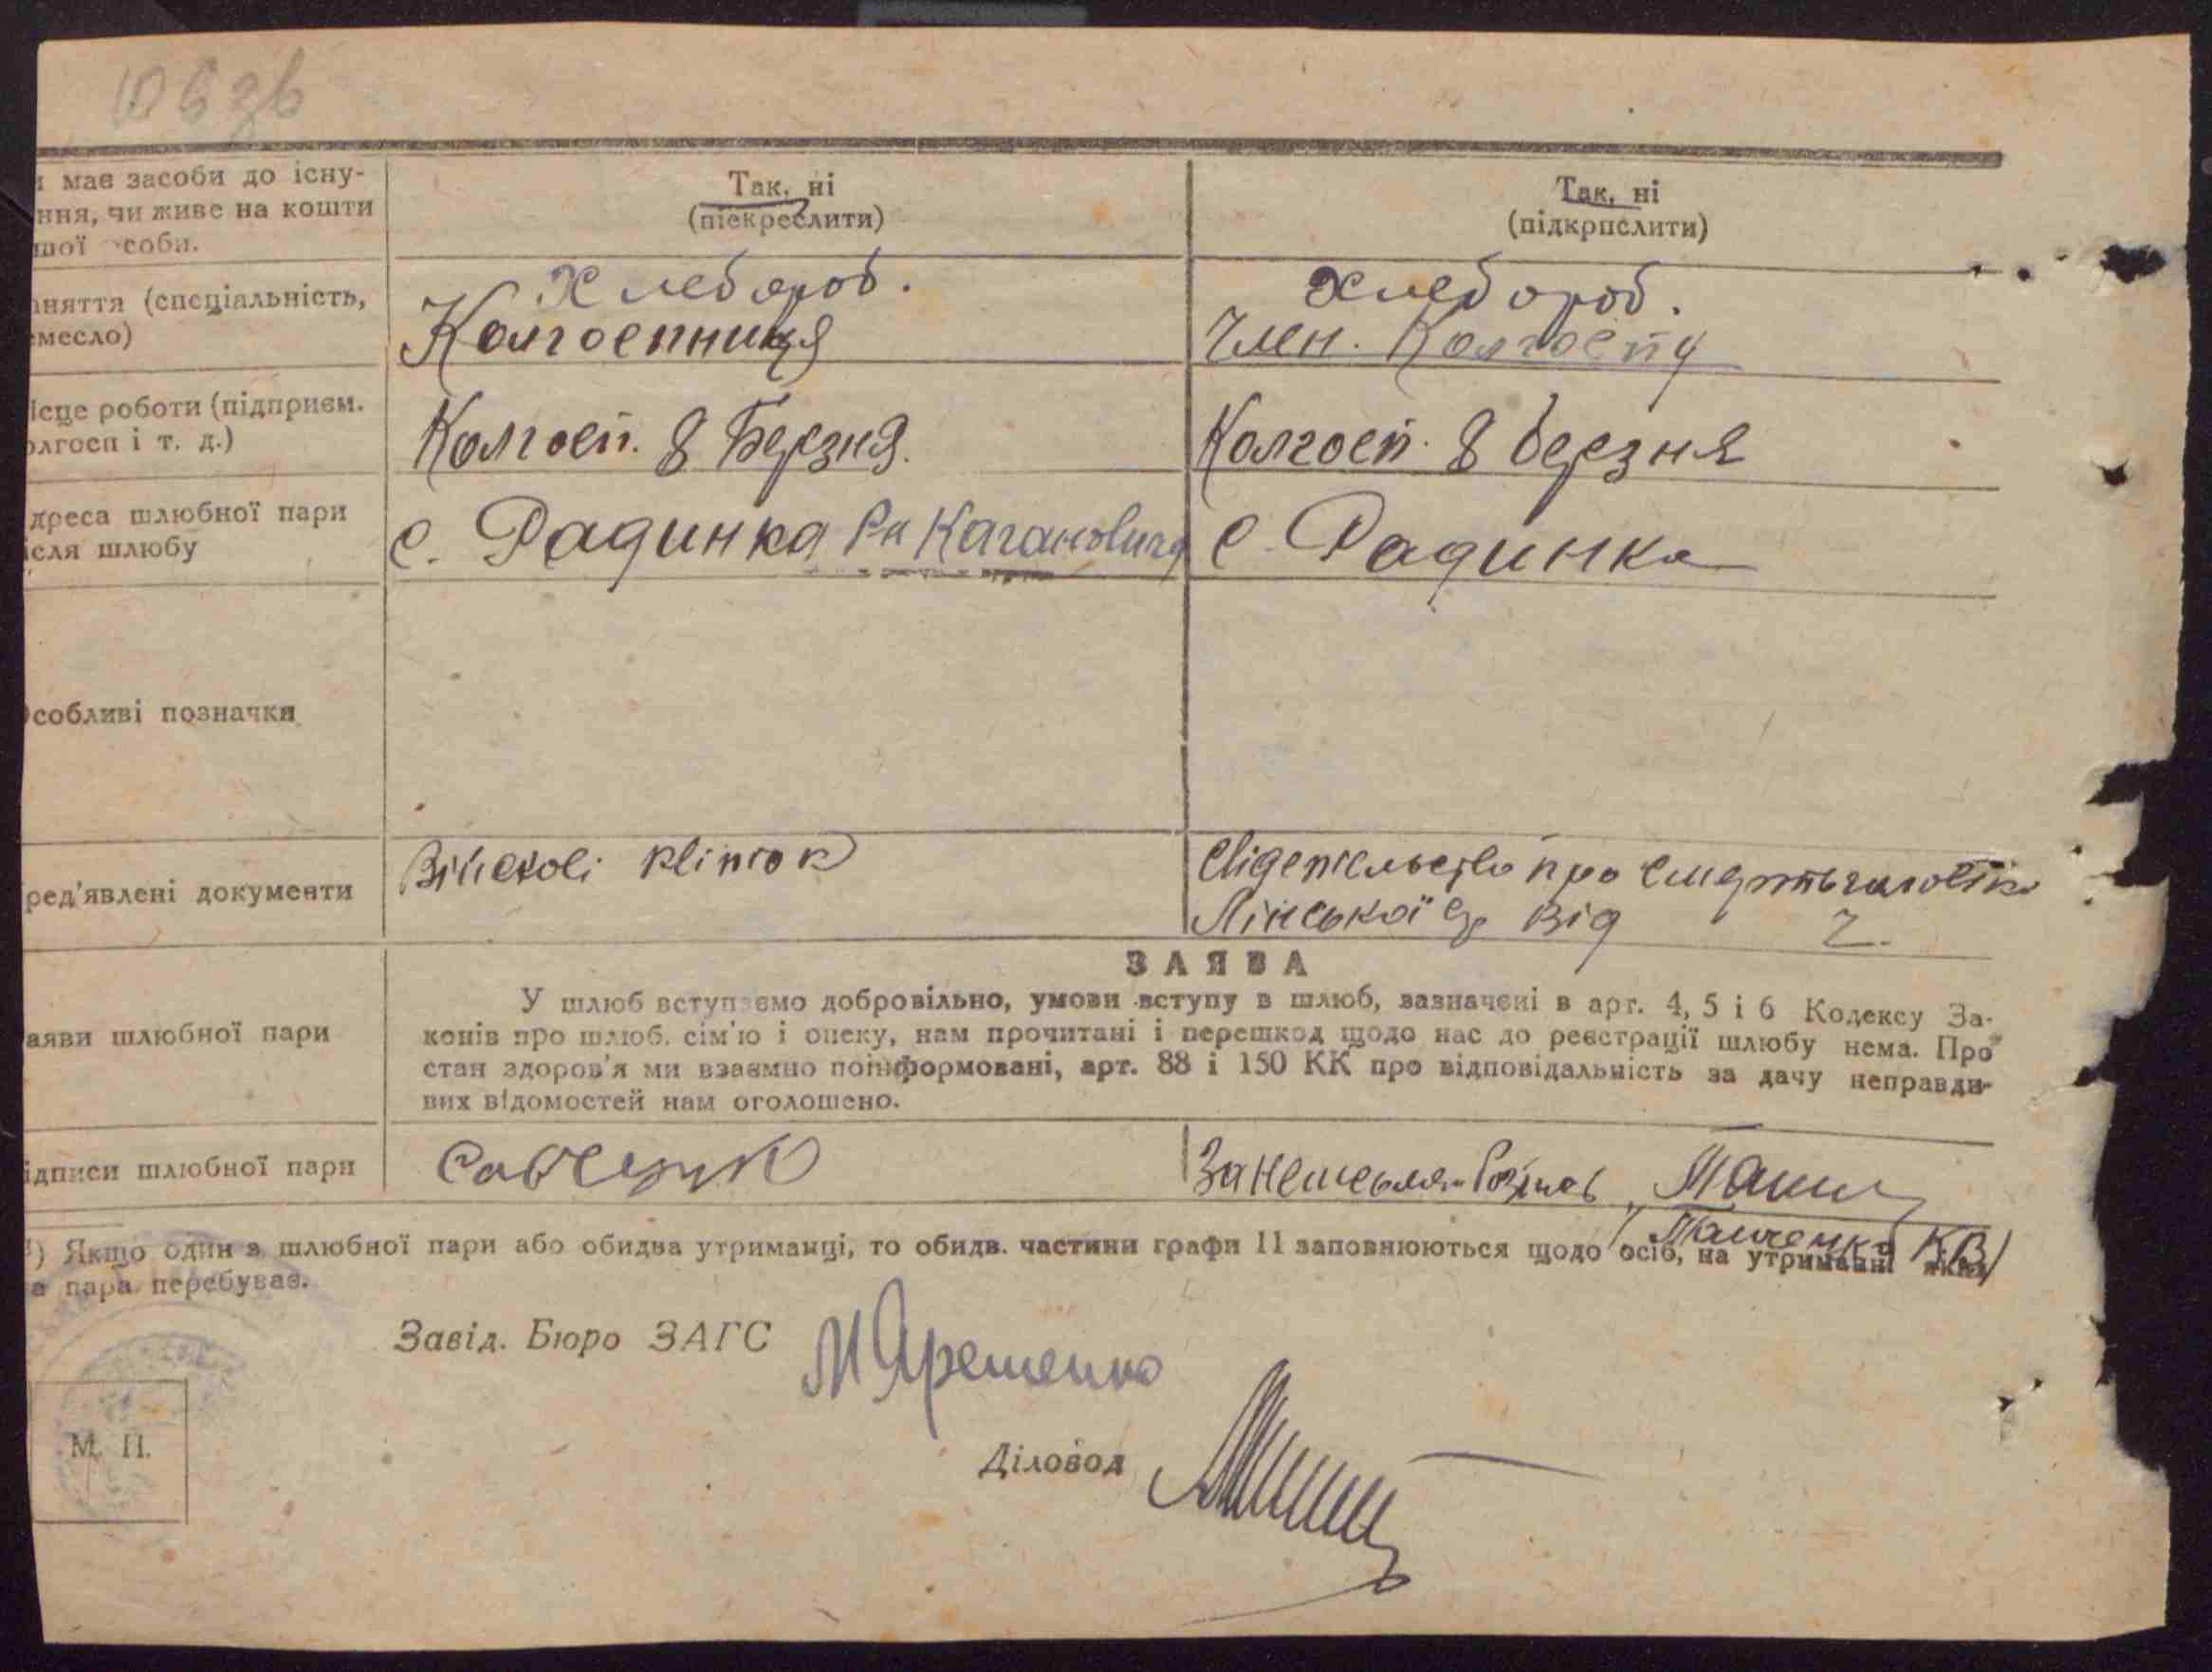 и має засоби до існу-
ння, чи живе на кошти
шої особи.
Так, ні
(піекреслити)
Так, ні
(підкрпслити)
аняття (спеціальність,
емесло)
Хлебороб.
Колгоспниця
Хлебороб.
Член. Колгоспу
ісце роботи (підприєм.
олгосп і т. д.)
Колгосп. 8 Березня.
Колгосп. 8 березня
дреса шлюбної пари
ісля шлюбу
с. Радинка Рн Кагановича
с. Радинка
собливі позначки
ред'явлені документи
Військові квіток
про смерть чоловіка
від
г.
ЗАЯВА
аяви шлюбної пари
У шлюб вступаємо добровільно, умови вступу в шлюб, зазначені в арт. 4, 5 і 6 Кодексу За-
конів про шлюб. сім'ю і опеку, нам прочитані і перешкод щодо нас до реєстрації шлюбу нема. Про
стан здоров'я ми взаємно поінформовані, арт. 88 і 150 КК про відповідальність за дачу неправди-
вих відомостей нам оголошено.
ідписи шлюбної пари
Савчук
) Якщо один з шлюбної пари або обидва утриманці, то обидв. частини графи 11 заповнюються щодо осіб, на утриманні яких
а пара перебуває.
Завід. Бюро ЗАГС
М Яременко
Діловод
М. П.